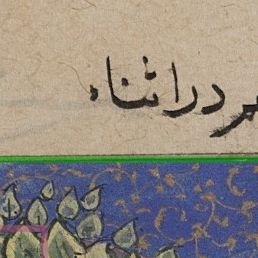 در اثناء